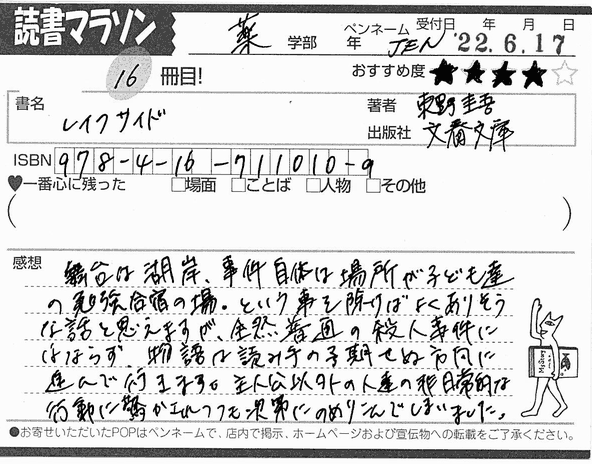 読書マラソン
薬 学部 年 ペンネーム JEN 受付日 年 月 日 '22.6.17
16 冊目! おすすめ度 ★★★★☆
書名 レイクサイド
著者 東野圭吾
出版社 文春文庫
ISBN 978-4-16-711010-9
♥一番心に残った □場面 □ことば □人物 □その他
( )
感想
舞台は湖岸、事件自体は場所が子ども達
の勉強合宿の場。という事を除けばよくありそう
な話と思えますが、全然普通の殺人事件に
はならず 物語は読み手の予期せぬ方向に
進んで行きます。主人公以外の人達の非日常的な
行動に驚かされつつも次第にのめりこんでしまいました。
●お寄せいただいたPOPはペンネームで、店内で掲示、ホームページおよび宣伝物への転載をご了承ください。